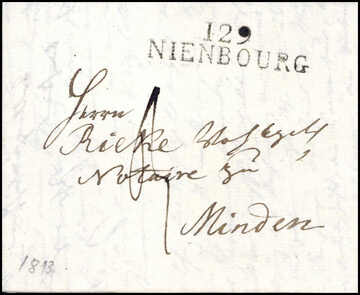 129
NIENBOURG
Herrn
Rieke
Notaire zu
Minden
1813